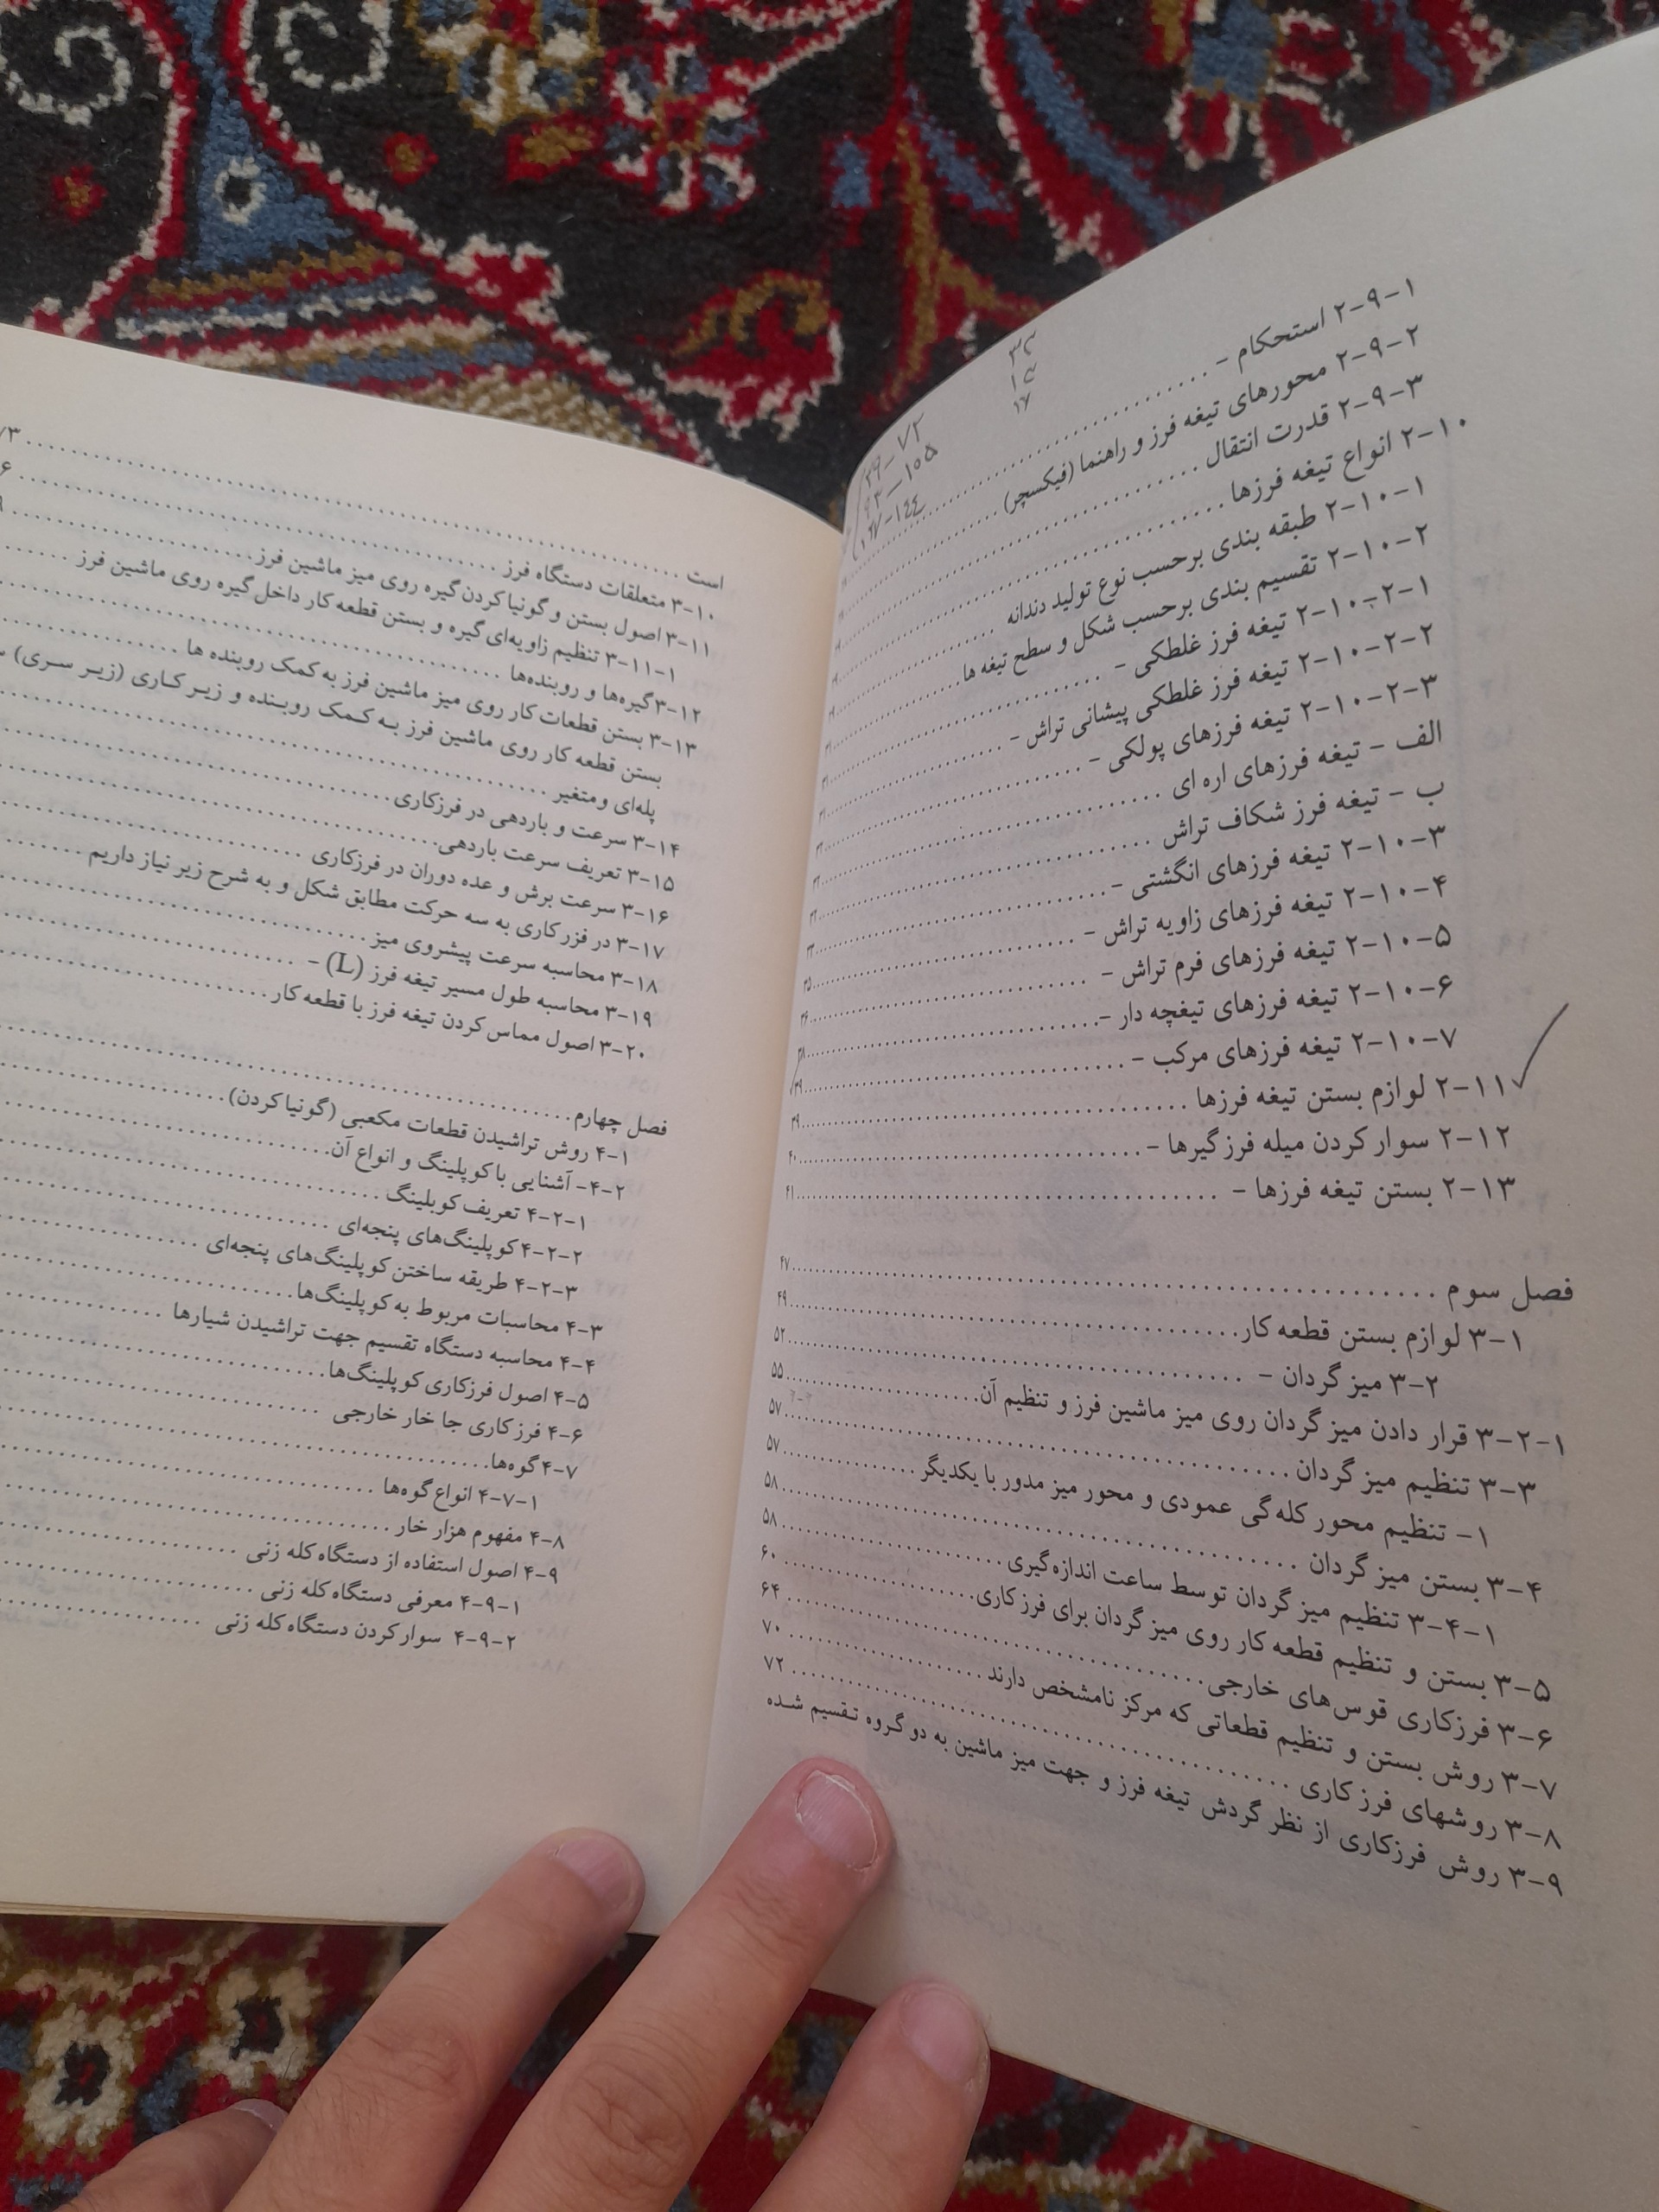 ۲-۹-۱ استحکام -
۲-۹-۲ محورهای تیغه فرز و راهنما (فیکسچر)
۲-۹-۳ قدرت انتقال
۲-۱۰ انواع تیغه فرزها
۲-۱۰-۱ طبقه بندی برحسب نوع تولید دندانه
۲-۱۰-۲ تقسیم بندی برحسب شکل و سطح تیغه ها
۲-۱۰-۲-۱ تیغه فرز غلطکی -
۲-۱۰-۲-۲ تیغه فرز غلطکی پیشانی تراش -
۲-۱۰-۲-۳ تیغه فرزهای پولکی -
الف - تیغه فرزهای اره ای
ب - تیغه فرز شکاف تراش
۲-۱۰-۳ تیغه فرزهای انگشتی -
۲-۱۰-۴ تیغه فرزهای زاویه تراش -
۲-۱۰-۵ تیغه فرزهای فرم تراش -
۲-۱۰-۶ تیغه فرزهای تیغچه دار -
۲-۱۰-۷ تیغه فرزهای مرکب -
۲-۱۱ لوازم بستن تیغه فرزها ۳۹
۲-۱۲ سوار کردن میله فرزگیرها - ۴۰
۲-۱۳ بستن تیغه فرزها - ۴۱
فصل سوم ۴۷
۳-۱ لوازم بستن قطعه کار ۴۹
۳-۲ میز گردان - ۵۲
۳-۲-۱ قرار دادن میز گردان روی میز ماشین فرز و تنظیم آن ۵۵
۳-۳ تنظیم میز گردان ۵۷
۱- تنظیم محور کله‌گی عمودی و محور میز مدور با یکدیگر ۵۷
۳-۴ بستن میز گردان ۵۸
۳-۴-۱ تنظیم میز گردان توسط ساعت اندازه‌گیری ۵۸
۳-۵ بستن و تنظیم قطعه کار روی میز گردان برای فرزکاری ۶۰
۳-۶ فرزکاری قوس‌های خارجی ۶۴
۳-۷ روش بستن و تنظیم قطعاتی که مرکز نامشخص دارند ۷۰
۳-۸ روشهای فرزکاری ۷۲
۳-۹ روش فرزکاری از نظر گردش تیغه فرز و جهت میز ماشین به دو گروه تقسیم شده
است
۳-۱۰ متعلقات دستگاه فرز
۳-۱۱ اصول بستن و گونیا کردن گیره روی میز ماشین فرز
۳-۱۱-۱ تنظیم زاویه‌ای گیره و بستن قطعه کار داخل گیره روی ماشین فرز
۳-۱۲ گیره‌ها و روبنده‌ها
۳-۱۳ بستن قطعات کار روی میز ماشین فرز به کمک روبنده ها
بستن قطعه کار روی ماشین فرز به کمک روبنده و زیر کاری (زیر سری)
پله‌ای و متغیر
۳-۱۴ سرعت و باردهی در فرزکاری
۳-۱۵ تعریف سرعت باردهی
۳-۱۶ سرعت برش و عده دوران در فرزکاری
۳-۱۷ در فزرکاری به سه حرکت مطابق شکل و به شرح زیر نیاز داریم
۳-۱۸ محاسبه سرعت پیشروی میز
۳-۱۹ محاسبه طول مسیر تیغه فرز (L) -
۳-۲۰ اصول مماس کردن تیغه فرز با قطعه کار
فصل چهارم
۴-۱ روش تراشیدن قطعات مکعبی (گونیا کردن)
۴-۲- آشنایی با کوپلینگ و انواع آن
۴-۲-۱ تعریف کوپلینگ
۴-۲-۲ کوپلینگ‌های پنجه‌ای
۴-۲-۳ طریقه ساختن کوپلینگ‌های پنجه‌ای
۴-۳ محاسبات مربوط به کوپلینگ‌ها
۴-۴ محاسبه دستگاه تقسیم جهت تراشیدن شیارها
۴-۵ اصول فرزکاری کوپلینگ‌ها
۴-۶ فرزکاری جا خار خارجی
۴-۷ گوه‌ها
۴-۷-۱ انواع گوه‌ها
۴-۸ مفهوم هزار خار
۴-۹ اصول استفاده از دستگاه کله زنی
۴-۹-۱ معرفی دستگاه کله زنی
۴-۹-۲ سوار کردن دستگاه کله زنی